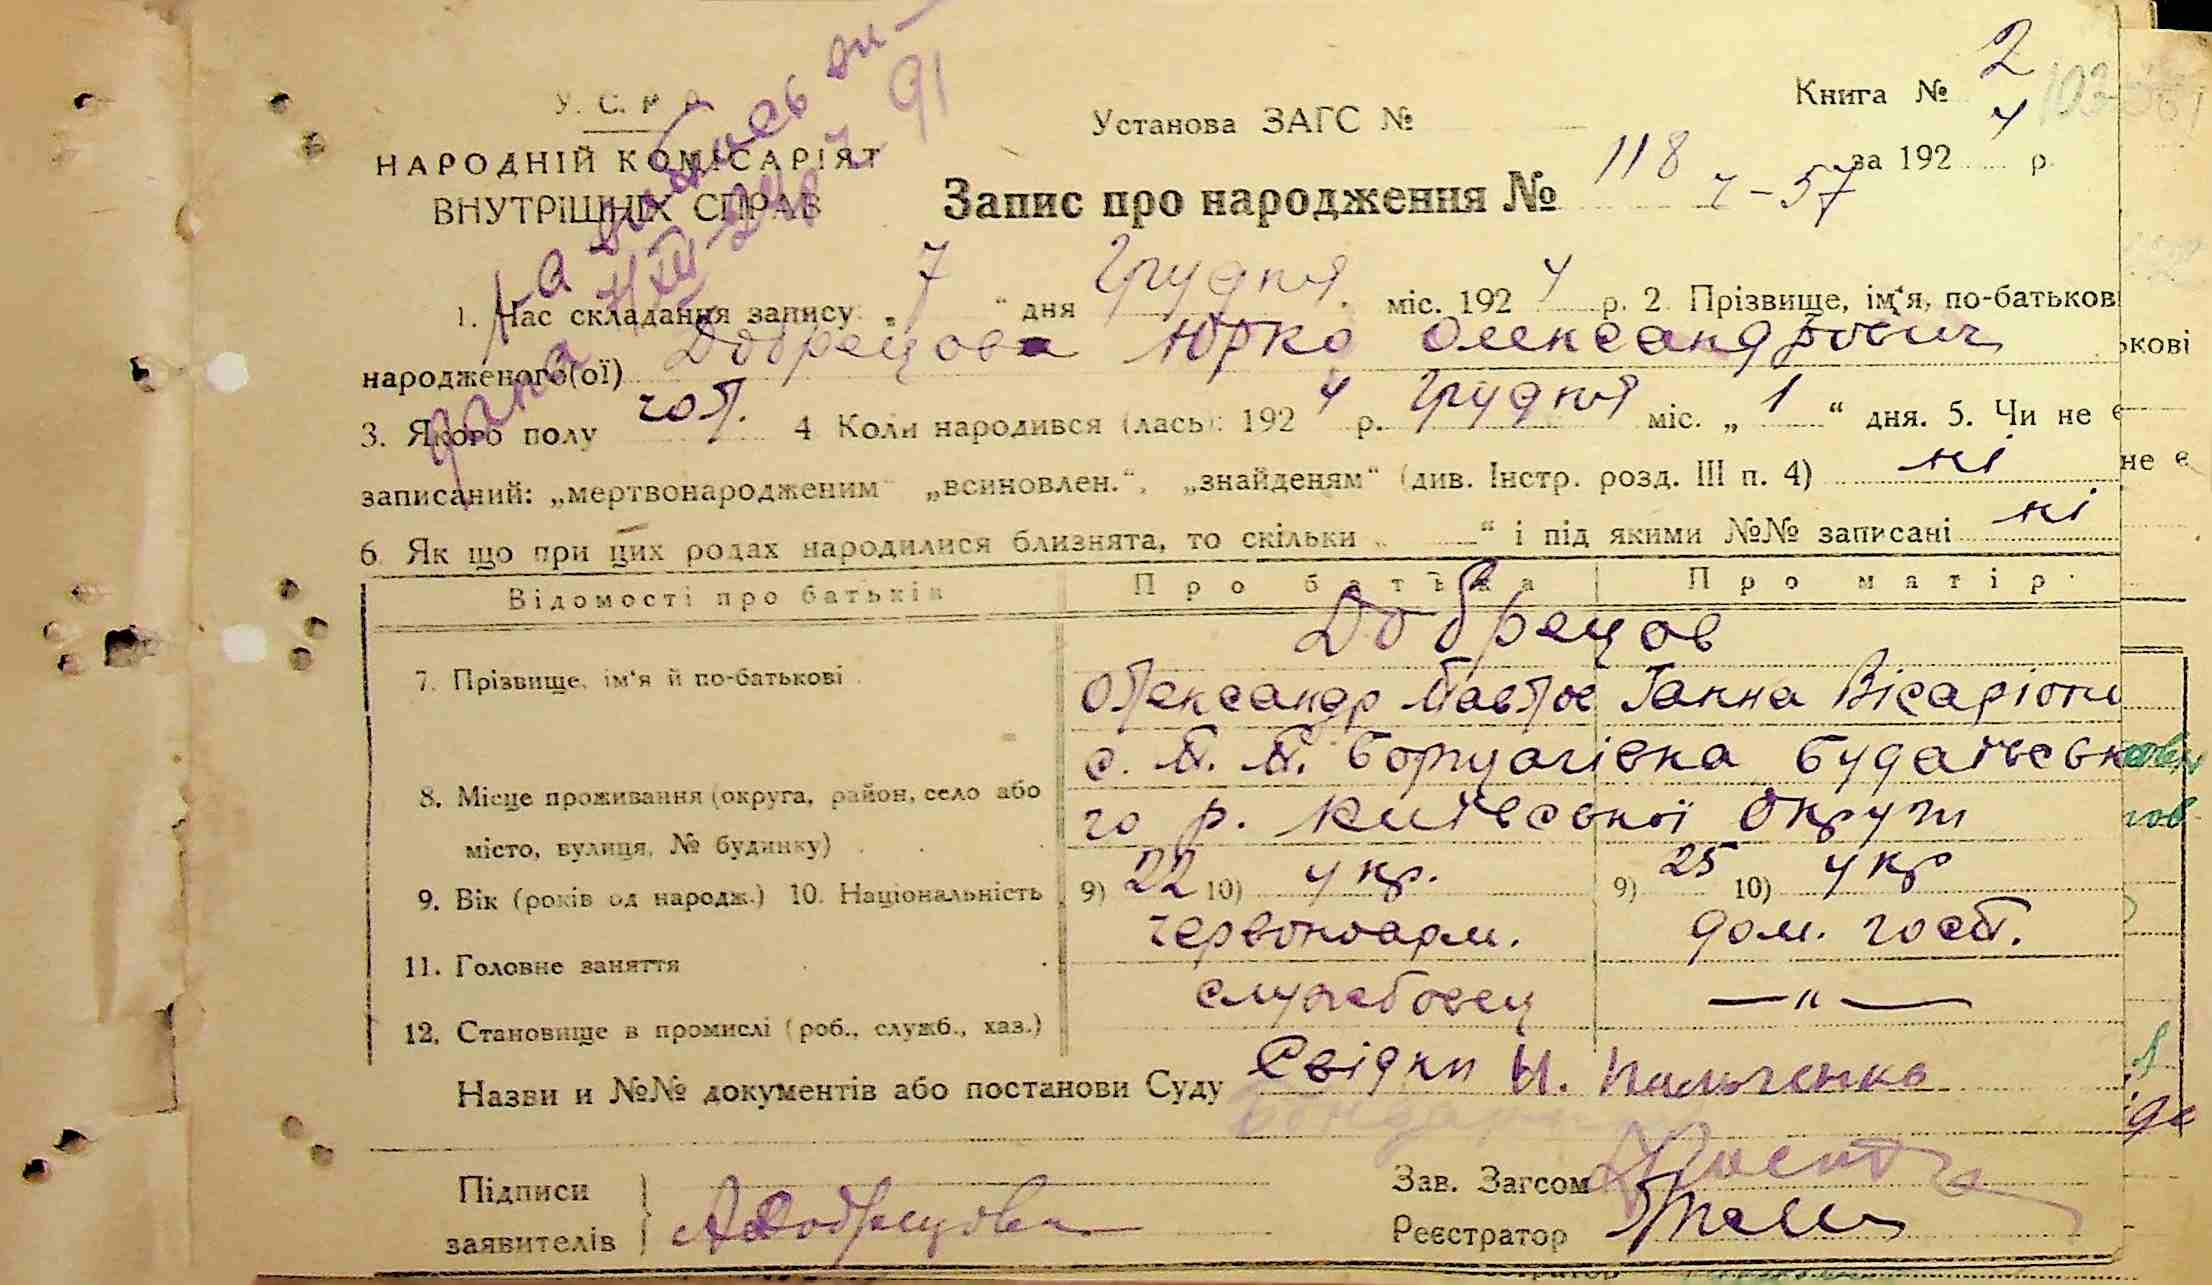 Книга № 2
У. С. Р. Р.
Установа ЗАГС №
за 192 4 р.
НАРОДНІЙ КОМІСАРІЯТ
ВНУТРІШНІХ СПРАВ
Запис про народження № 118
4-57
1. Час складання запису: „ 7 “ дня Грудня міс. 192 4 р. 2. Прізвище, ім‘я, по-батькові
народженого(ої) Добрецов Юрко Олександрович
3. Якого полу чол. 4 Коли народився (лась): 192 4 р. Грудня міс. „ 1 “ дня. 5. Чи не є
записаний: „мертвонародженим“ „всиновлен.“, „знайденям“ (див. Інстр. розд. III п. 4) ні
6. Як що при цих родах народилися близнята, то скільки „ — “ і під якими №№ записані ні
Відомості про батьків Про батька Про матір
Добрецов
7. Прізвище, ім‘я й по-батькові Олександр Павлов Ганна Вісаріон
с. П. П. Борщагівка Будаївсько
8. Місце проживання (округа, район, село або
го р. Київської Округи
місто, вулиця, № будинку)
9. Вік (років од народж.) 10. Національність 9) 22 10) укр. 9) 25 10) укр
11. Головне заняття червоноарм. дом. госп.
12. Становище в промислі (роб., служб., хаз.) службовец — “ —
Назви и №№ документів або постанови Суду Свідки Н. Пальченко
Підписи
заявителів А Добрецова
Зав. Загсом
Реєстратор